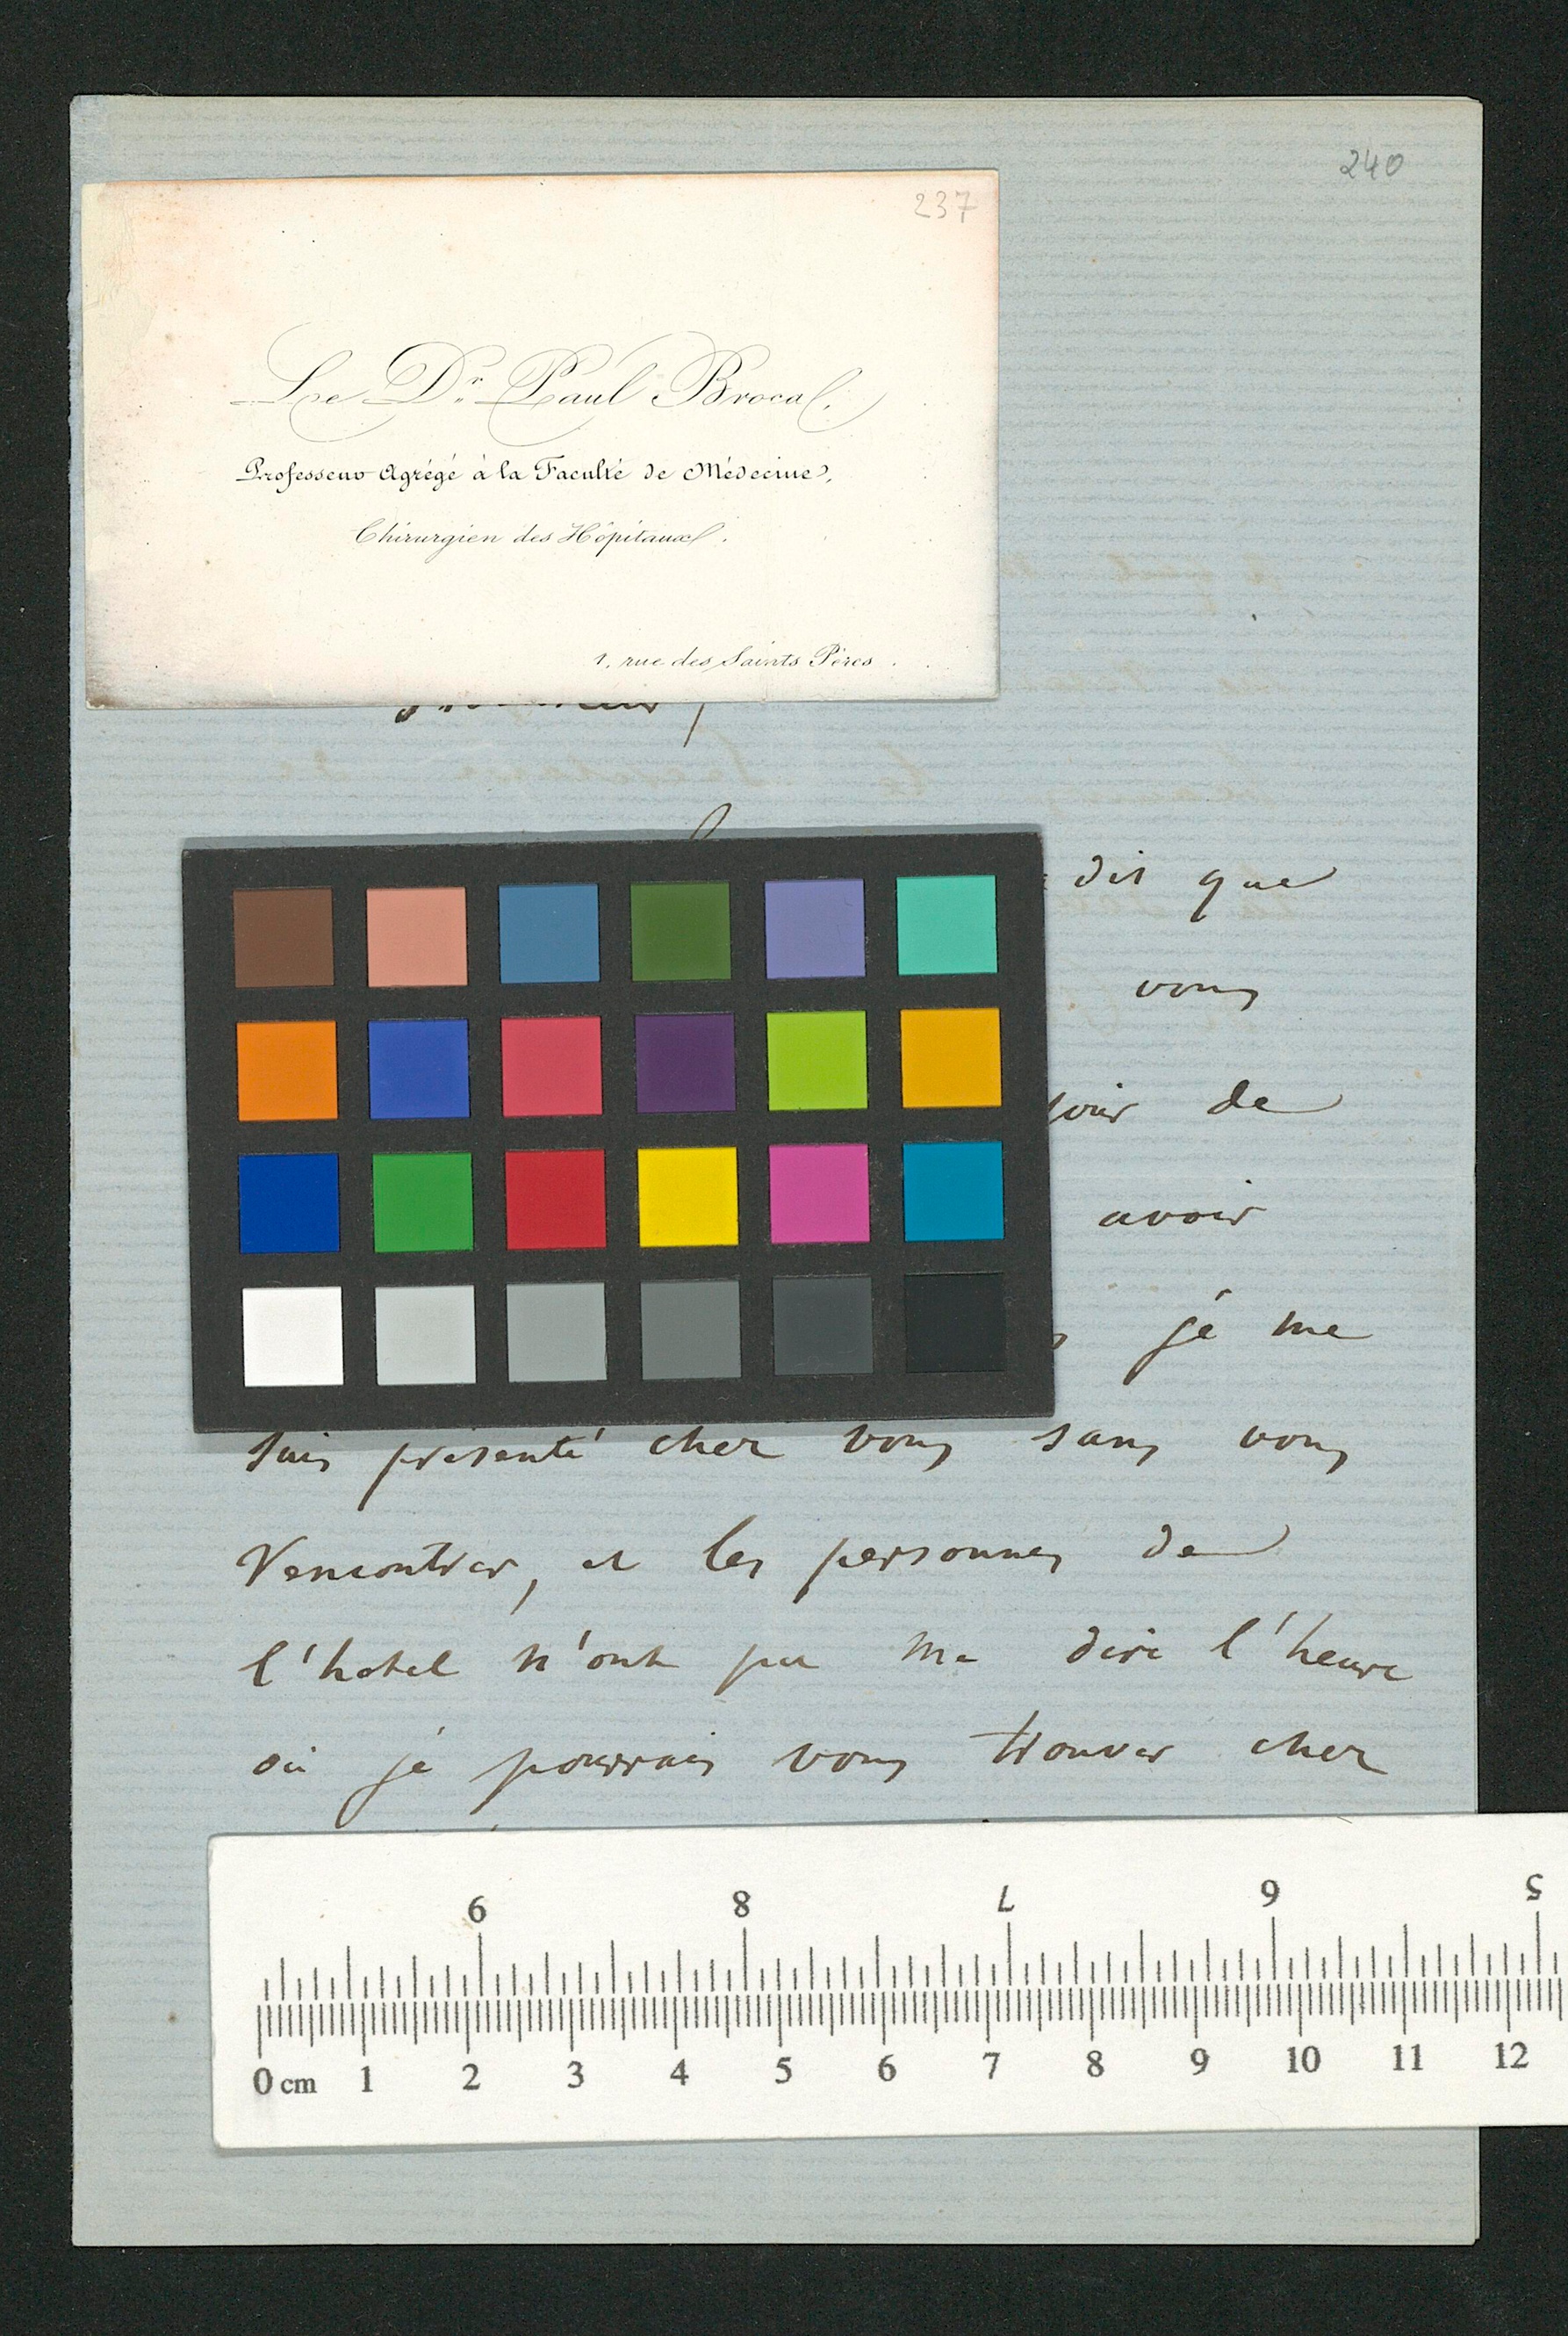 240
237
Le Dr. Paul Broca.
Professeur Agrégé à la Faculté de Médecine,
Chirurgien des Hôpitaux.
1, rue des Saints Pères.
dit que
vous
de
avoir
je me
suis présenté chez vous sans vous
rencontrer, et les personnes de
l'hotel n'ont pu me dire l'heure
où je pourrais vous trouver chez
9 8 7 6 5
0 cm 1 2 3 4 5 6 7 8 9 10 11 12